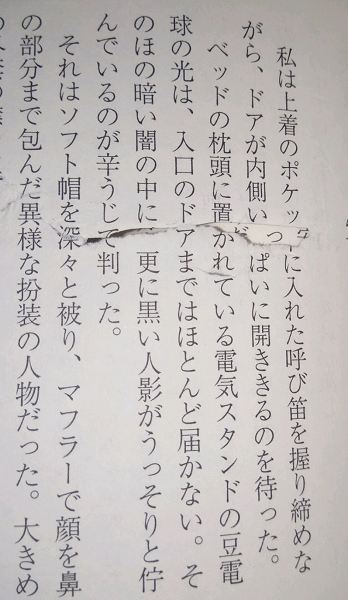 私は上着のポケットに入れた呼び笛を握り締めな
がら、ドアが内側いっぱいに開ききるのを待った。
ベッドの枕頭に置かれている電気スタンドの豆電
球の光は、入口のドアまではほとんど届かない。そ
のほの暗い闇の中に、更に黒い人影がうっそりと佇
んでいるのが辛うじて判った。
それはソフト帽を深々と被り、マフラーで顔を鼻
の部分まで包んだ異様な扮装の人物だった。大きめ